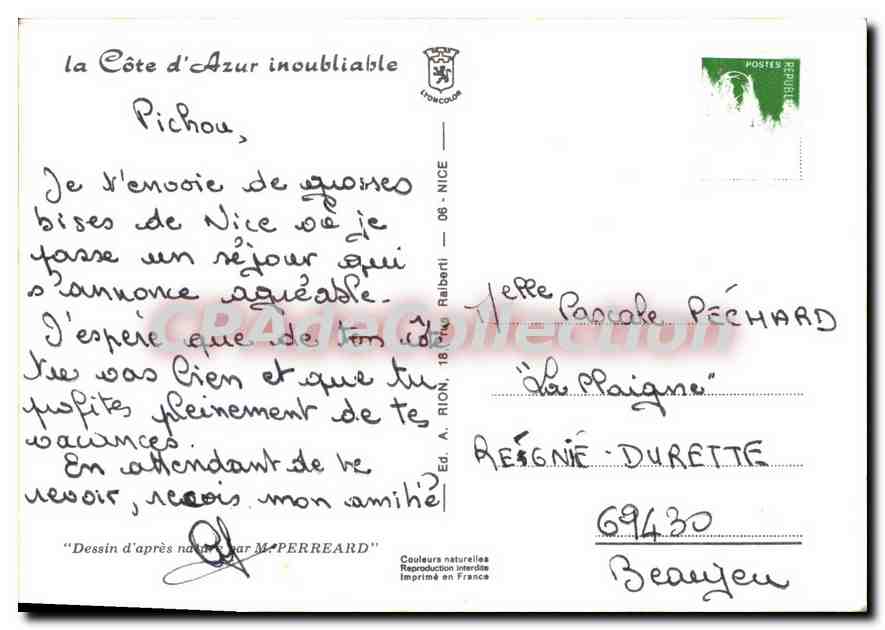 la Côte d'Azur inoubliable
LYONCOLOR
POSTES
RÉPUBL
Pichou,
Je t'envoie de grosses
bises de Nice où je
passe un séjour qui
s'annonce agréable.
J'espère que de ton côté
tu vas bien et que tu
profites pleinement de tes
vacances.
En attendant de te
revoir, reçois mon amitié
"Dessin d'après nature par M. PERREARD"
Ed. A. RION, 18, rue Raiberti — 06 - NICE —
Couleurs naturelles
Reproduction interdite
Imprimé en France
Melle Pascale PÉCHARD
"La Plaigne"
RÉIGNIÉ - DURETTE
69430
Beaujeu
CPAdeCollection